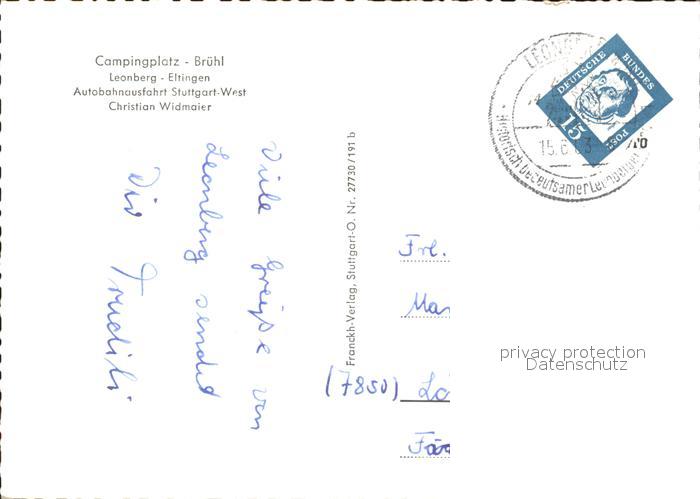 Campingplatz - Brühl
Leonberg - Eltingen
Autobahnausfahrt Stuttgart-West
Christian Widmaier
Viele Grüße von
Leonberg sendet
Dir Trudili
Franckh-Verlag, Stuttgart-O. Nr. 27730/191 b
LEONBE
15.6.63
Historisch bedeutsamer Leonberger
DEUTSCHE BUNDES
POST
15
Frl.
Mar
(7850) Lö
privacy protection
Datenschutz